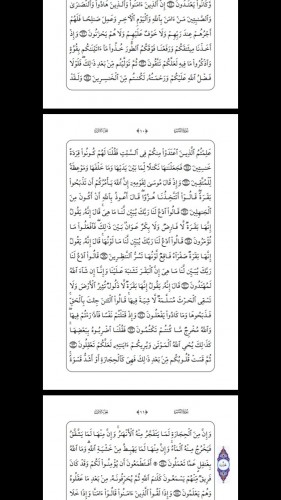 وَّكَانُوا۟ يَعْتَدُونَ ٦١ إِنَّ ٱلَّذِينَ ءَامَنُوا۟ وَٱلَّذِينَ هَادُوا۟ وَٱلنَّصَٰرَىٰ
وَٱلصَّٰبِـِٔينَ مَنْ ءَامَنَ بِٱللَّهِ وَٱلْيَوْمِ ٱلْءَاخِرِ وَعَمِلَ صَٰلِحًا فَلَهُمْ
أَجْرُهُمْ عِندَ رَبِّهِمْ وَلَا خَوْفٌ عَلَيْهِمْ وَلَا هُمْ يَحْزَنُونَ ٦٢ وَإِذْ
أَخَذْنَا مِيثَٰقَكُمْ وَرَفَعْنَا فَوْقَكُمُ ٱلطُّورَ خُذُوا۟ مَآ ءَاتَيْنَٰكُم بِقُوَّةٍ
وَٱذْكُرُوا۟ مَا فِيهِ لَعَلَّكُمْ تَتَّقُونَ ٦٣ ثُمَّ تَوَلَّيْتُم مِّنۢ بَعْدِ ذَٰلِكَ فَلَوْلَا
فَضْلُ ٱللَّهِ عَلَيْكُمْ وَرَحْمَتُهُۥ لَكُنتُم مِّنَ ٱلْخَٰسِرِينَ ٦٤ وَلَقَدْ
١٠
عَلِمْتُمُ ٱلَّذِينَ ٱعْتَدَوْا۟ مِنكُمْ فِى ٱلسَّبْتِ فَقُلْنَا لَهُمْ كُونُوا۟ قِرَدَةً
خَٰسِـِٔينَ ٦٥ فَجَعَلْنَٰهَا نَكَٰلًا لِّمَا بَيْنَ يَدَيْهَا وَمَا خَلْفَهَا وَمَوْعِظَةً
لِّلْمُتَّقِينَ ٦٦ وَإِذْ قَالَ مُوسَىٰ لِقَوْمِهِۦٓ إِنَّ ٱللَّهَ يَأْمُرُكُمْ أَن تَذْبَحُوا۟
بَقَرَةً قَالُوٓا۟ أَتَتَّخِذُنَا هُزُوًا قَالَ أَعُوذُ بِٱللَّهِ أَنْ أَكُونَ مِنَ
ٱلْجَٰهِلِينَ ٦٧ قَالُوا۟ ٱدْعُ لَنَا رَبَّكَ يُبَيِّن لَّنَا مَا هِىَ قَالَ إِنَّهُۥ يَقُولُ
إِنَّهَا بَقَرَةٌ لَّا فَارِضٌ وَلَا بِكْرٌ عَوَانٌۢ بَيْنَ ذَٰلِكَ فَٱفْعَلُوا۟ مَا
تُؤْمَرُونَ ٦٨ قَالُوا۟ ٱدْعُ لَنَا رَبَّكَ يُبَيِّن لَّنَا مَا لَوْنُهَا قَالَ إِنَّهُۥ يَقُولُ
إِنَّهَا بَقَرَةٌ صَفْرَآءُ فَاقِعٌ لَّوْنُهَا تَسُرُّ ٱلنَّٰظِرِينَ ٦٩ قَالُوا۟ ٱدْعُ لَنَا
رَبَّكَ يُبَيِّن لَّنَا مَا هِىَ إِنَّ ٱلْبَقَرَ تَشَٰبَهَ عَلَيْنَا وَإِنَّآ إِن شَآءَ ٱللَّهُ
لَمُهْتَدُونَ ٧٠ قَالَ إِنَّهُۥ يَقُولُ إِنَّهَا بَقَرَةٌ لَّا ذَلُولٌ تُثِيرُ ٱلْأَرْضَ وَلَا
تَسْقِى ٱلْحَرْثَ مُسَلَّمَةٌ لَّا شِيَةَ فِيهَا قَالُوا۟ ٱلْـَٰٔنَ جِئْتَ بِٱلْحَقِّ
فَذَبَحُوهَا وَمَا كَادُوا۟ يَفْعَلُونَ ٧١ وَإِذْ قَتَلْتُمْ نَفْسًا فَٱدَّٰرَْٰٔتُمْ فِيهَا
وَٱللَّهُ مُخْرِجٌ مَّا كُنتُمْ تَكْتُمُونَ ٧٢ فَقُلْنَا ٱضْرِبُوهُ بِبَعْضِهَا
كَذَٰلِكَ يُحْىِ ٱللَّهُ ٱلْمَوْتَىٰ وَيُرِيكُمْ ءَايَٰتِهِۦ لَعَلَّكُمْ تَعْقِلُونَ ٧٣
ثُمَّ قَسَتْ قُلُوبُكُم مِّنۢ بَعْدِ ذَٰلِكَ فَهِىَ كَٱلْحِجَارَةِ أَوْ أَشَدُّ قَسْوَةً
١١
وَإِنَّ مِنَ ٱلْحِجَارَةِ لَمَا يَتَفَجَّرُ مِنْهُ ٱلْأَنْهَٰرُ وَإِنَّ مِنْهَا لَمَا يَشَّقَّقُ
فَيَخْرُجُ مِنْهُ ٱلْمَآءُ وَإِنَّ مِنْهَا لَمَا يَهْبِطُ مِنْ خَشْيَةِ ٱللَّهِ وَمَا ٱللَّهُ
بِغَٰفِلٍ عَمَّا تَعْمَلُونَ ٧٤ ۞ أَفَتَطْمَعُونَ أَن يُؤْمِنُوا۟ لَكُمْ وَقَدْ كَانَ
فَرِيقٌ مِّنْهُمْ يَسْمَعُونَ كَلَٰمَ ٱللَّهِ ثُمَّ يُحَرِّفُونَهُۥ مِنۢ بَعْدِ مَا عَقَلُوهُ
وَهُمْ يَعْلَمُونَ ٧٥ وَإِذَا لَقُوا۟ ٱلَّذِينَ ءَامَنُوا۟ قَالُوٓا۟ ءَامَنَّا وَإِذَا خَلَا